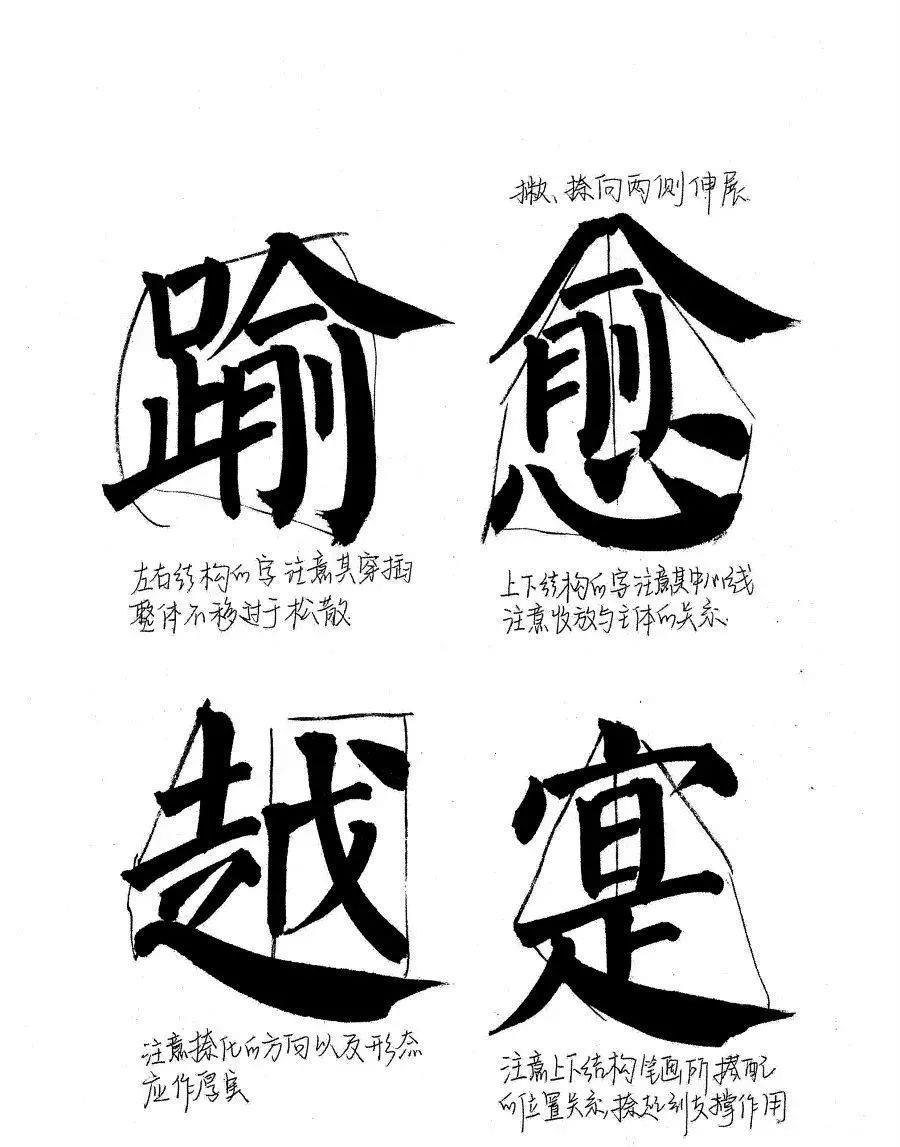 撇、捺向两侧伸展
踰
愈
左右结构的字注意其穿插
整体不移过于松散
上下结构的字注意其中心线
注意收放与主体的关系
越
寔
注意捺化的方向以及形态
应作厚实
注意上下结构笔画所搭配
的位置关系,捺起到支撑作用